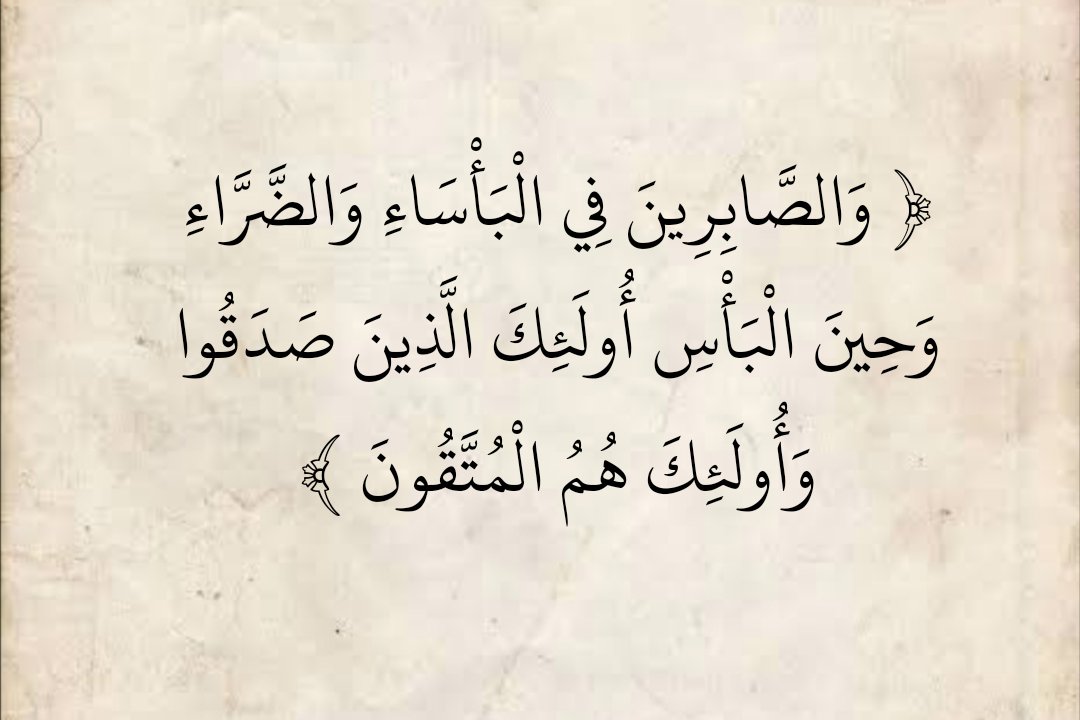 ﴿ وَالصَّابِرِينَ فِي الْبَأْسَاءِ وَالضَّرَّاءِ
وَحِينَ الْبَأْسِ أُولَئِكَ الَّذِينَ صَدَقُوا
وَأُولَئِكَ هُمُ الْمُتَّقُونَ ﴾